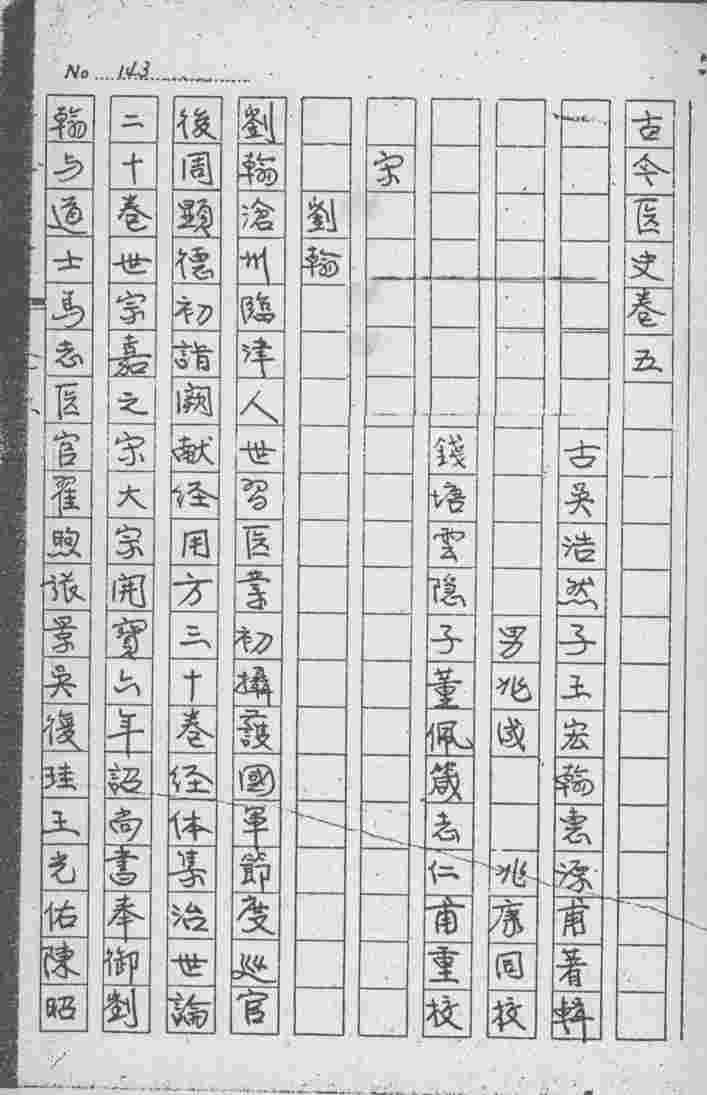 No 143
古今医史卷五
古吳浩然子王宏翰惠源甫著輯
男兆成 兆康同校
錢塘雲隐子董佩箴志仁甫重校
宋
劉翰
劉翰滄州臨津人世習医業初攝護國軍節度巡官
後周顕德初詣闕献経用方三十卷経体集治世論
二十卷世宗嘉之宋大宗開寳六年詔尚書奉御劉
翰与道士馬志医官翟煦張景吳復珪王光佑陳昭